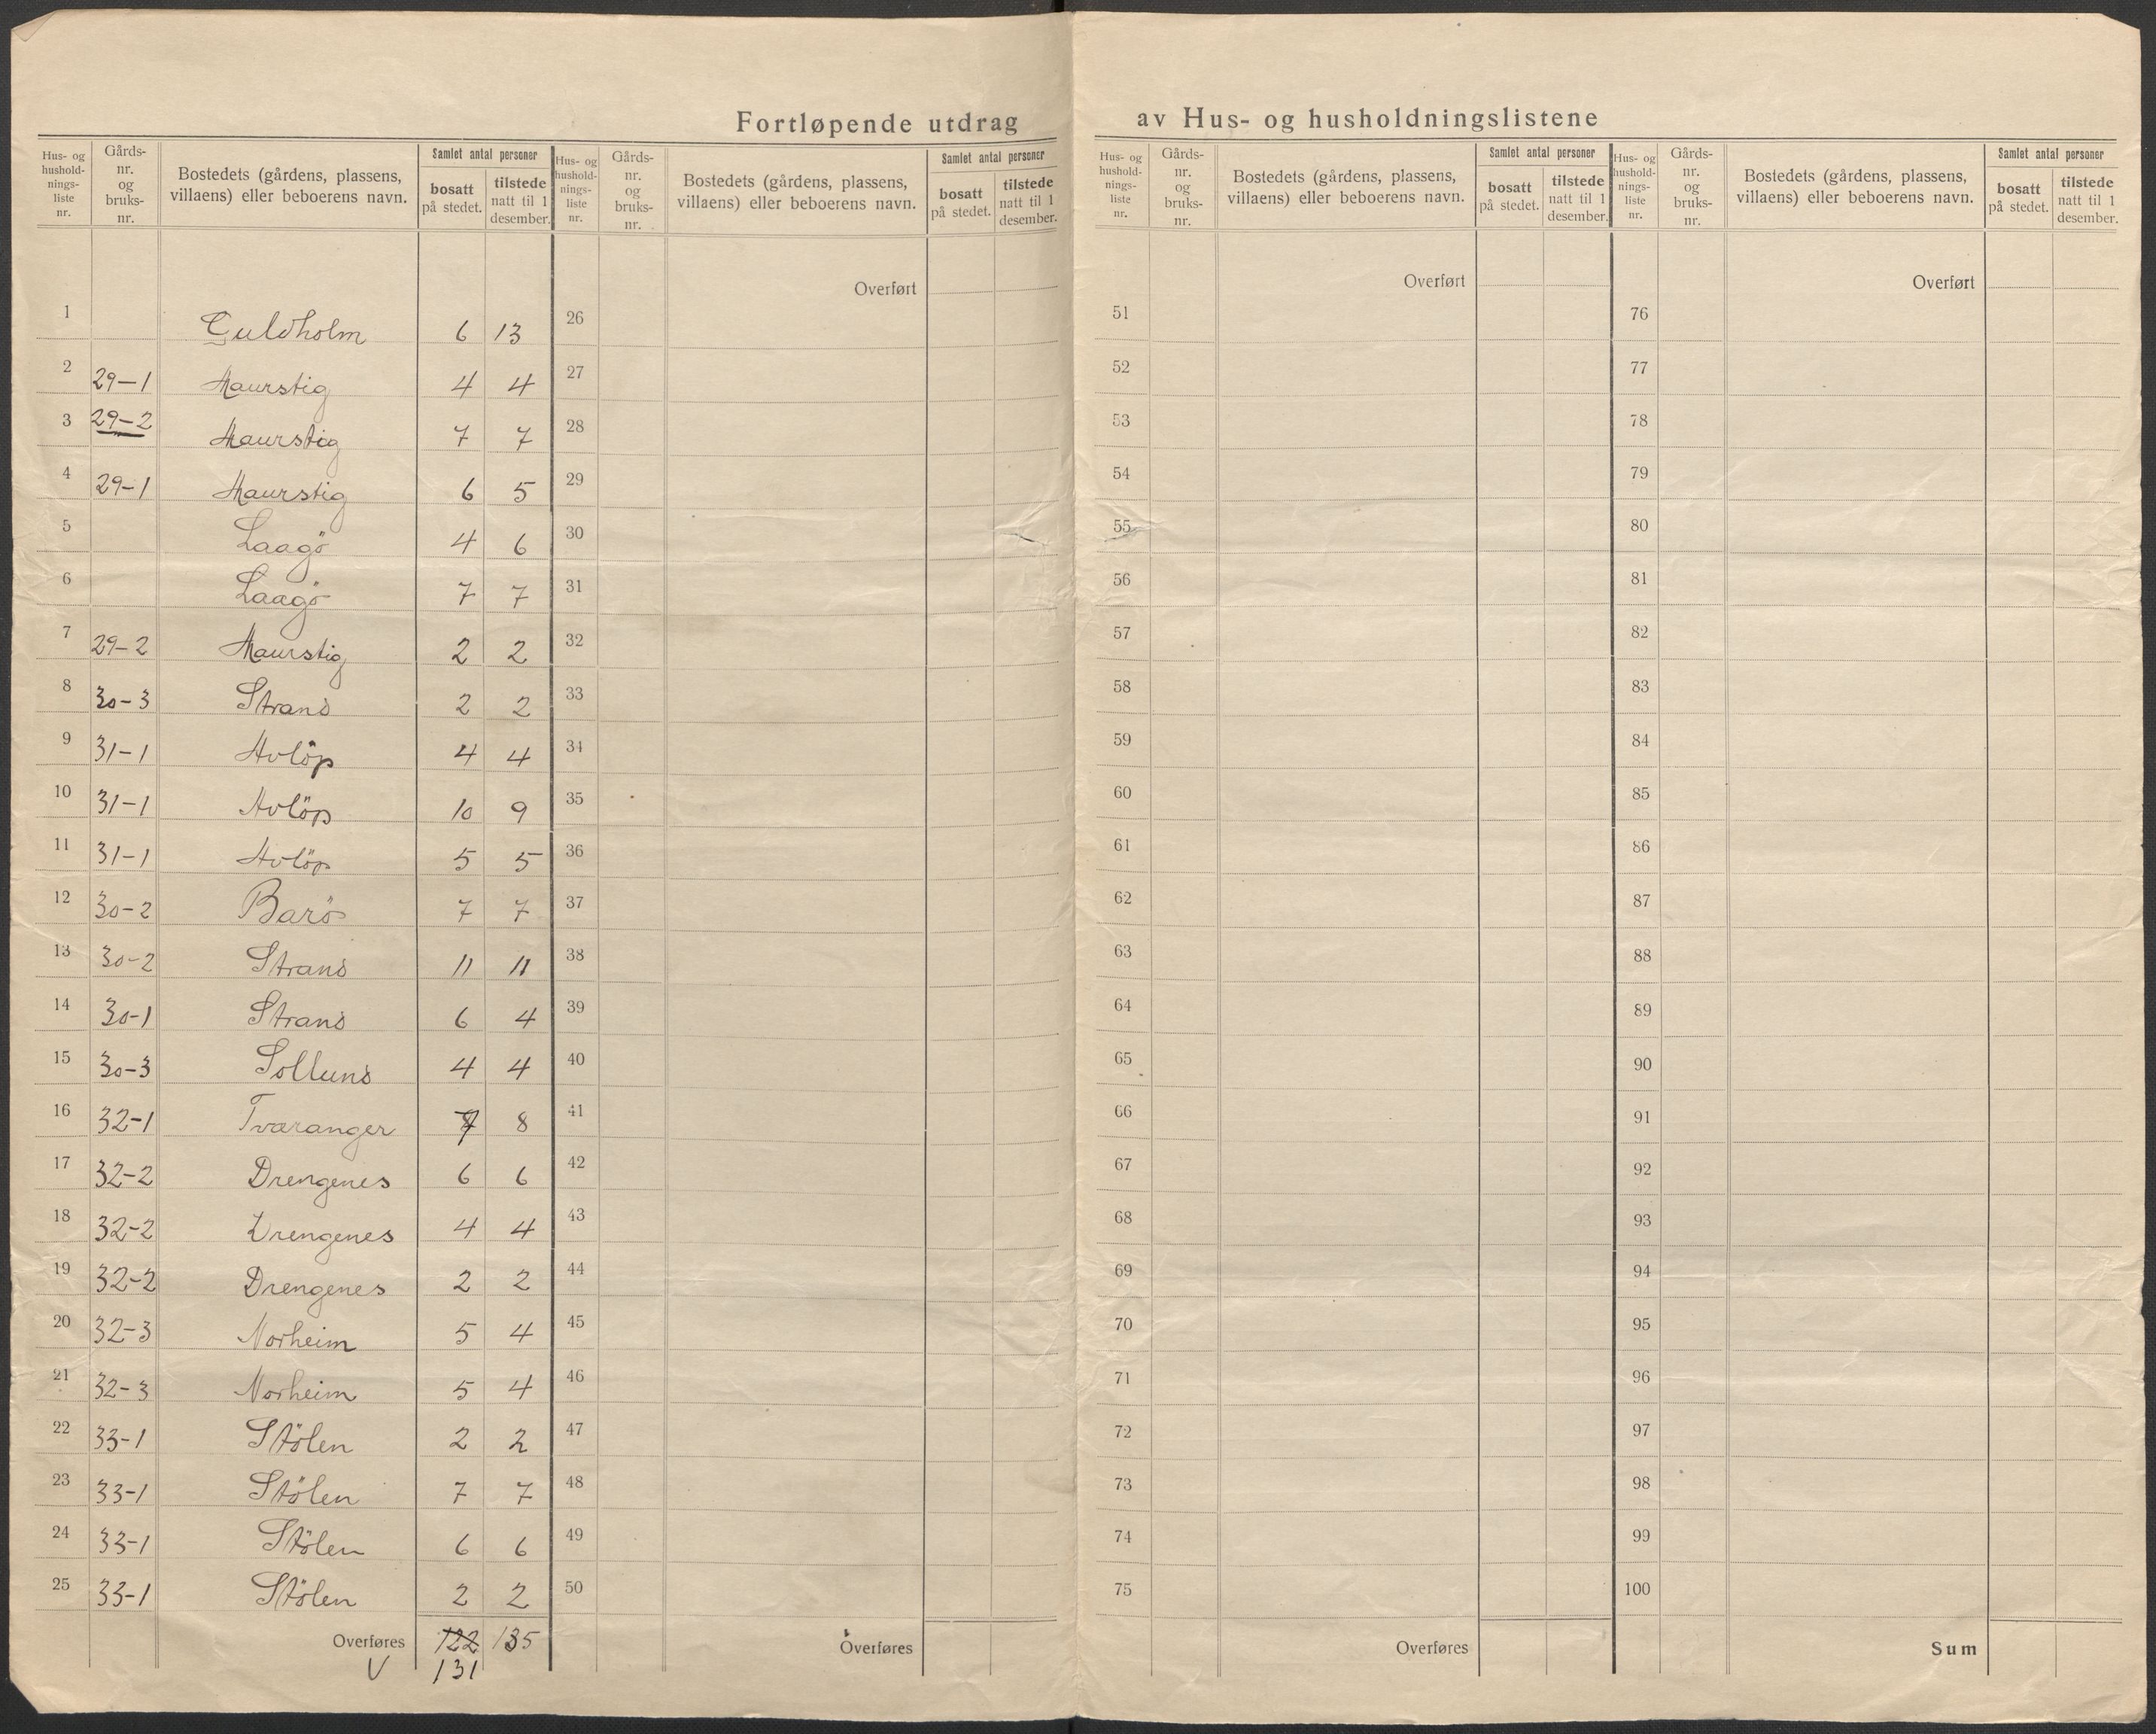 Fortløpende utdrag av Hus- og husholdningslistene
Hus- og hushold-nings-liste nr. Gårds-nr. og bruks-nr. Bostedets (gårdens, plassens, villaens) eller beboerens navn. Samlet antal personer bosatt på stedet. tilstede natt til 1 desember.
Hus- og hushold-nings-liste nr. Gårds-nr. og bruks-nr. Bostedets (gårdens, plassens, villaens) eller beboerens navn. Samlet antal personer bosatt på stedet. tilstede natt til 1 desember.
Hus- og hushold-nings-liste nr. Gårds-nr. og bruks-nr. Bostedets (gårdens, plassens, villaens) eller beboerens navn. Samlet antal personer bosatt på stedet. tilstede natt til 1 desember.
Hus- og hushold-nings-liste nr. Gårds-nr. og bruks-nr. Bostedets (gårdens, plassens, villaens) eller beboerens navn. Samlet antal personer bosatt på stedet. tilstede natt til 1 desember.
Overført Overført Overført
1 Guldholm 6 13 26 51 76
2 29-1 Haurstig 4 4 27 52 77
3 29-2 Haurstig 7 7 28 53 78
4 29-1 Haurstig 6 5 29 54 79
5 Laagö 4 6 30 55 80
6 Laagö 7 7 31 56 81
7 29-2 Haurstig 2 2 32 57 82
8 30-3 Strand 2 2 33 58 83
9 31-1 Avlöp 4 4 34 59 84
10 31-1 Avlöp 10 9 35 60 85
11 31-1 Avlöp 5 5 36 61 86
12 30-2 Barö 7 7 37 62 87
13 30-2 Strand 11 11 38 63 88
14 30-1 Strand 6 4 39 64 89
15 30-3 Sollund 4 4 40 65 90
16 32-1 Tværanger 7 8 41 66 91
17 32-2 Drengenes 6 6 42 67 92
18 32-2 Drengenes 4 4 43 68 93
19 32-2 Drengenes 2 2 44 69 94
20 32-3 Norheim 5 4 45 70 95
21 32-3 Norheim 5 4 46 71 96
22 33-1 Stölen 2 2 47 72 97
23 33-1 Stölen 7 7 48 73 98
24 33-1 Stölen 6 6 49 74 99
25 33-1 Stölen 2 2 50 75 100
Overføres 122 135 Overføres Overføres Sum
V 131